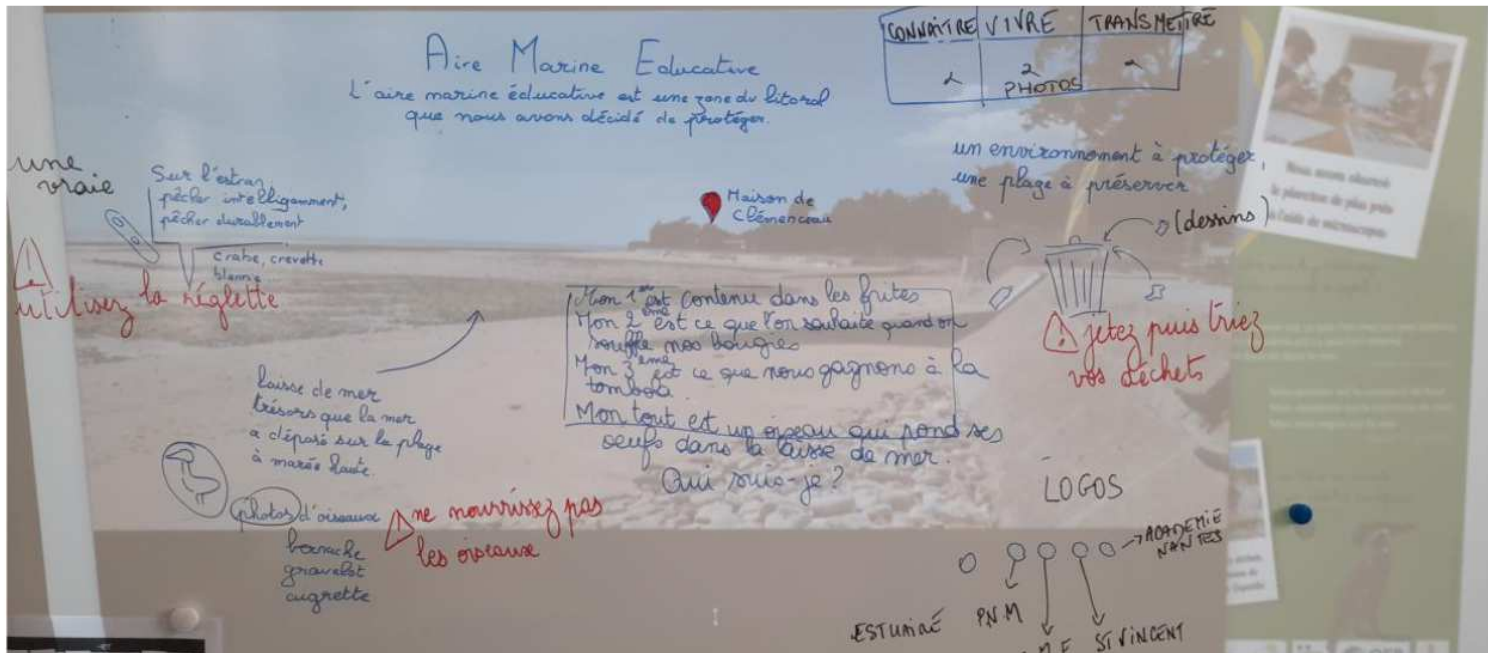 Aire Marine Educative
L'aire marine éducative est une zone du litoral
que nous avons décidé de protéger.
CONNAÎTRE VIVRE TRANSMETTRE
2
PHOTOS
une
vraie
Sur l'estran,
pêcher intelligamment,
pêcher durablement
crabe, crevette
utilisez la réglette
Maison de
Clémenceau
un environnement à protéger,
une plage à préserver
(dessins)
jetez puis triez
vos déchets
Mon 1er est contenu dans les frites
Mon 2ème est ce que l'on souhaite quand on
souffle nos bougies
Mon 3ème est ce que nous gagnons à la
tombola.
Mon tout est un oiseau qui pond ses
oeufs dans la laisse de mer.
Qui suis-je?
laisse de mer
trésors que la mer
a déposé sur la plage
à marée haute.
photos d'oiseaux
bernache
gravelot
aigrette
ne nourrissez pas
les oiseaux
LOGOS
ACADEMIE
NANTES
ESTUAIRE P.N.M
ST VINCENT
Nous avons observé
le plancton de plus près
à l'aide de microscopes